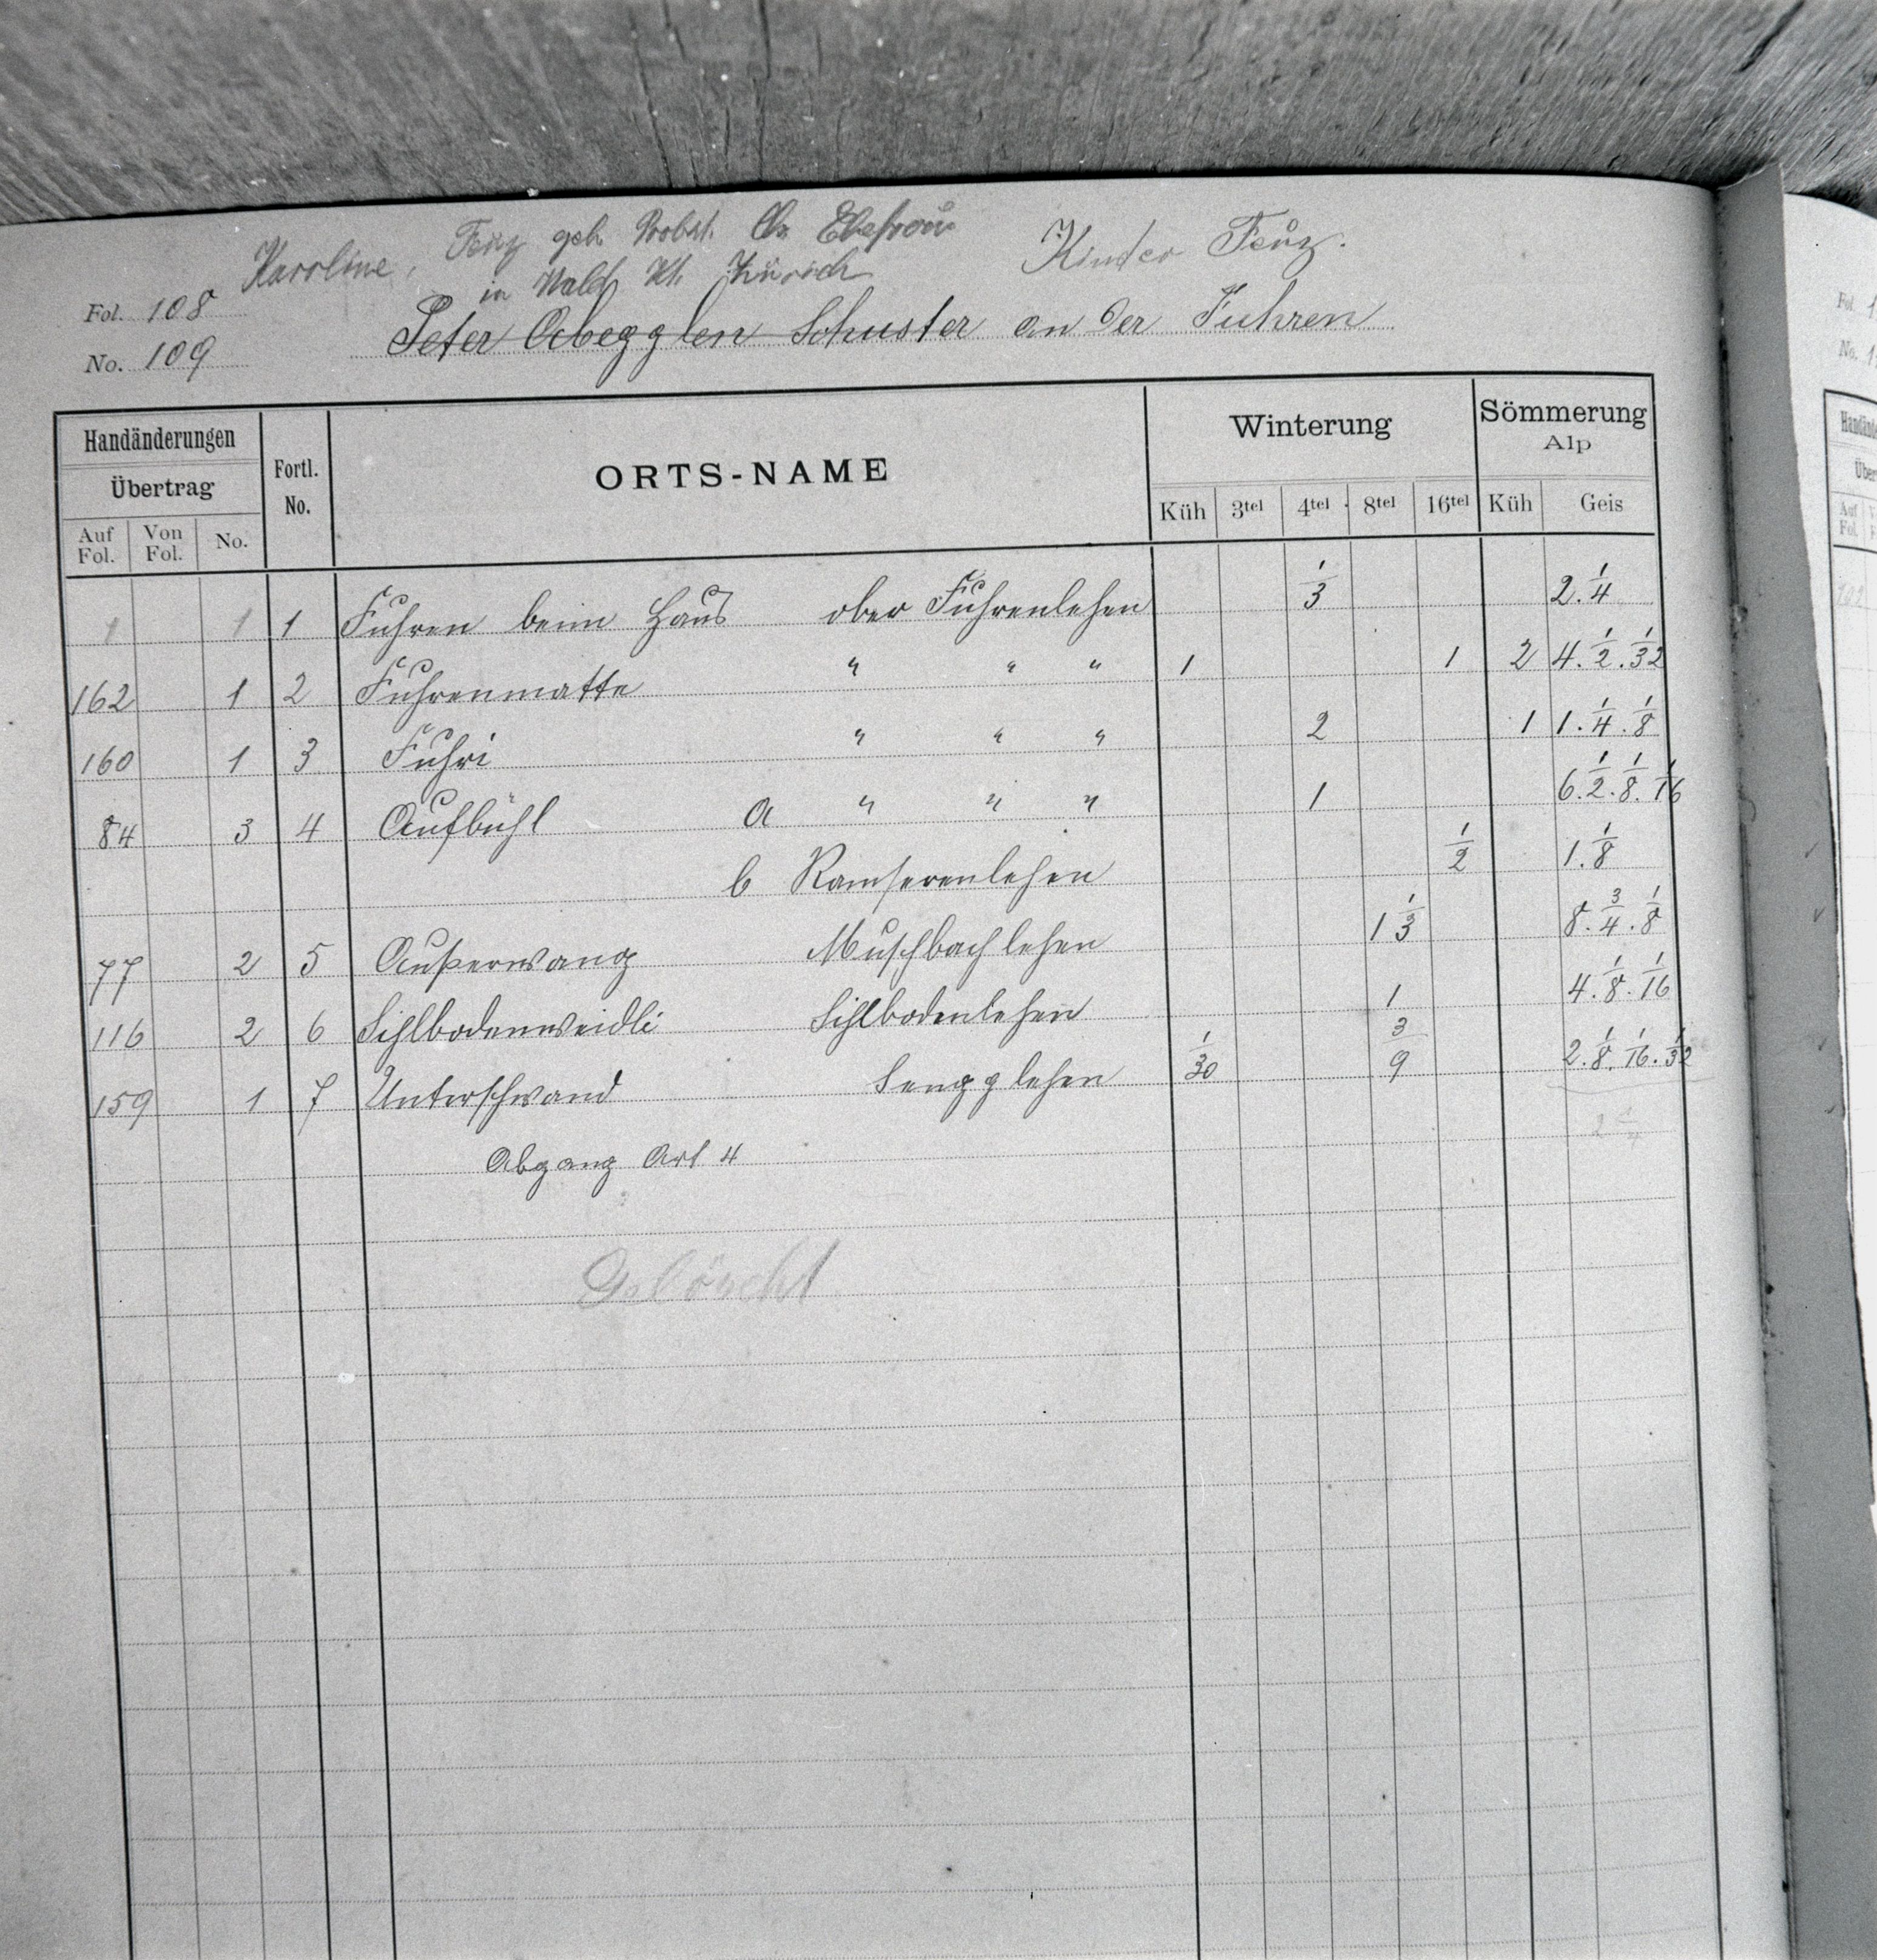 Karoline, Feuz geb. Probst. Chr. Ehefrau
in Wald Kt. Zürich
Kinder Feuz.
Fol. 108
No. 109
Peter Abegglen Schuster an der Fuhren
Handänderungen Übertrag Auf Fol. Von Fol. No. Fortl. No. ORTS-NAME Winterung Küh 3tel 4tel 8tel 16tel Sömmerung Alp Küh Geis
1 1 1 Fuhren beim Haus ober Fuhrenlehen 1/3 2.1/4
162 1 2 Fuhrenmatte " " " 1 1 2 4.1/2.1/32
160 1 3 Fuhri " " " 2 1 1.1/4.1/8
84 3 4 Aufbühl a " " " 1 6.1/2.1/8.1/16
b Ramserenlehen 1/2 1.1/8
77 2 5 Außerwang Muschbachlehen 1 1/3 8.3/4.1/8
116 2 6 Sihlbodenweidli Sihlbodenlehen 1 4.1/8.1/16
159 1 7 Unterschwand Sengglehen 1/30 3/9 2.1/8.1/16.1/32
Abgang Art 4
Gelöscht